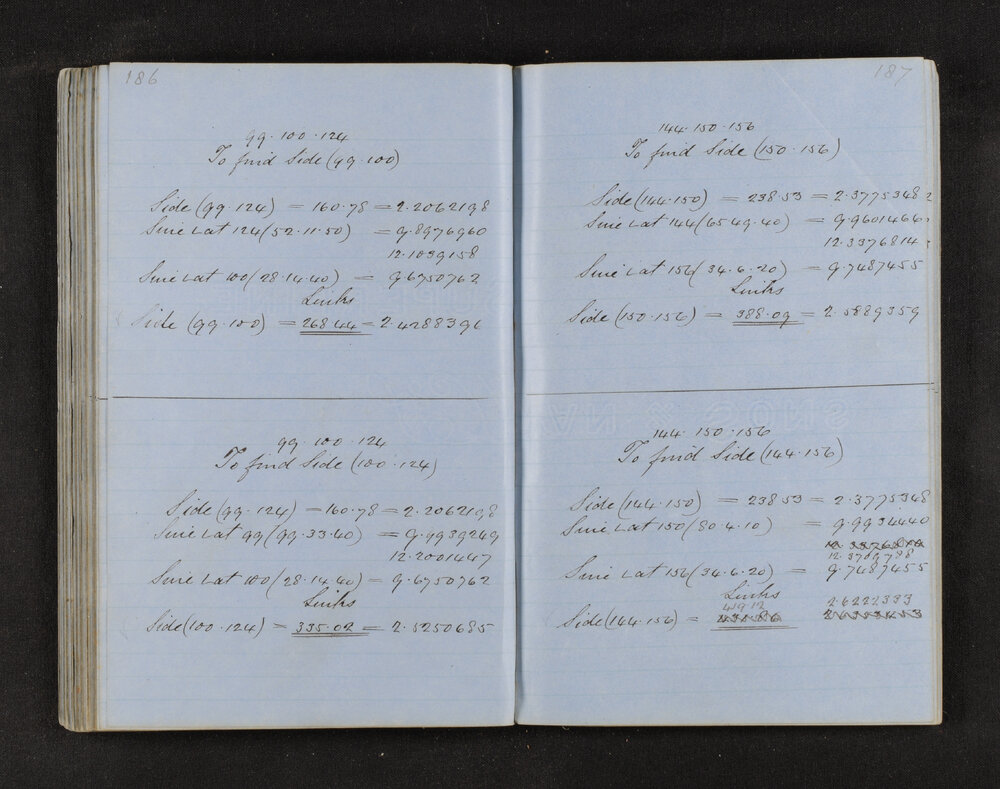 186
99.100.124
To find Side (99.100)
Side (99.124) = 160.78 = 2.2062198
Sine Lat 124 (52.11.50) = 9.8976960
12.1039158
Sine Lat 100 (28.14.40) = 9.6750762
Links
Side (99.100) = 268.44 = 2.4288396
99.100.124
To find Side (100.124)
Side (99.124) = 160.78 = 2.2062198
Sine Lat 99 (99.33.40) = 9.9939249
12.2001447
Sine Lat 100 (28.14.40) = 9.6750762
Links
Side (100.124) = 335.02 = 2.5250685
187
144.150.156
To find Side (150.156)
Side (144.150) = 238.53 = 2.3775348
Sine Lat 144 (65.49.40) = 9.9601466
12.3376814
Sine Lat 156 (34.6.20) = 9.7487455
Links
Side (150.156) = 388.09 = 2.5889359
144.150.156
To find Side (144.156)
Side (144.150) = 238.53 = 2.3775348
Sine Lat 150 (80.4.10) = 9.9934440
12.3709788
Sine Lat 156 (34.6.20) = 9.7487455
Links
2.6222333
Side (144.156) =